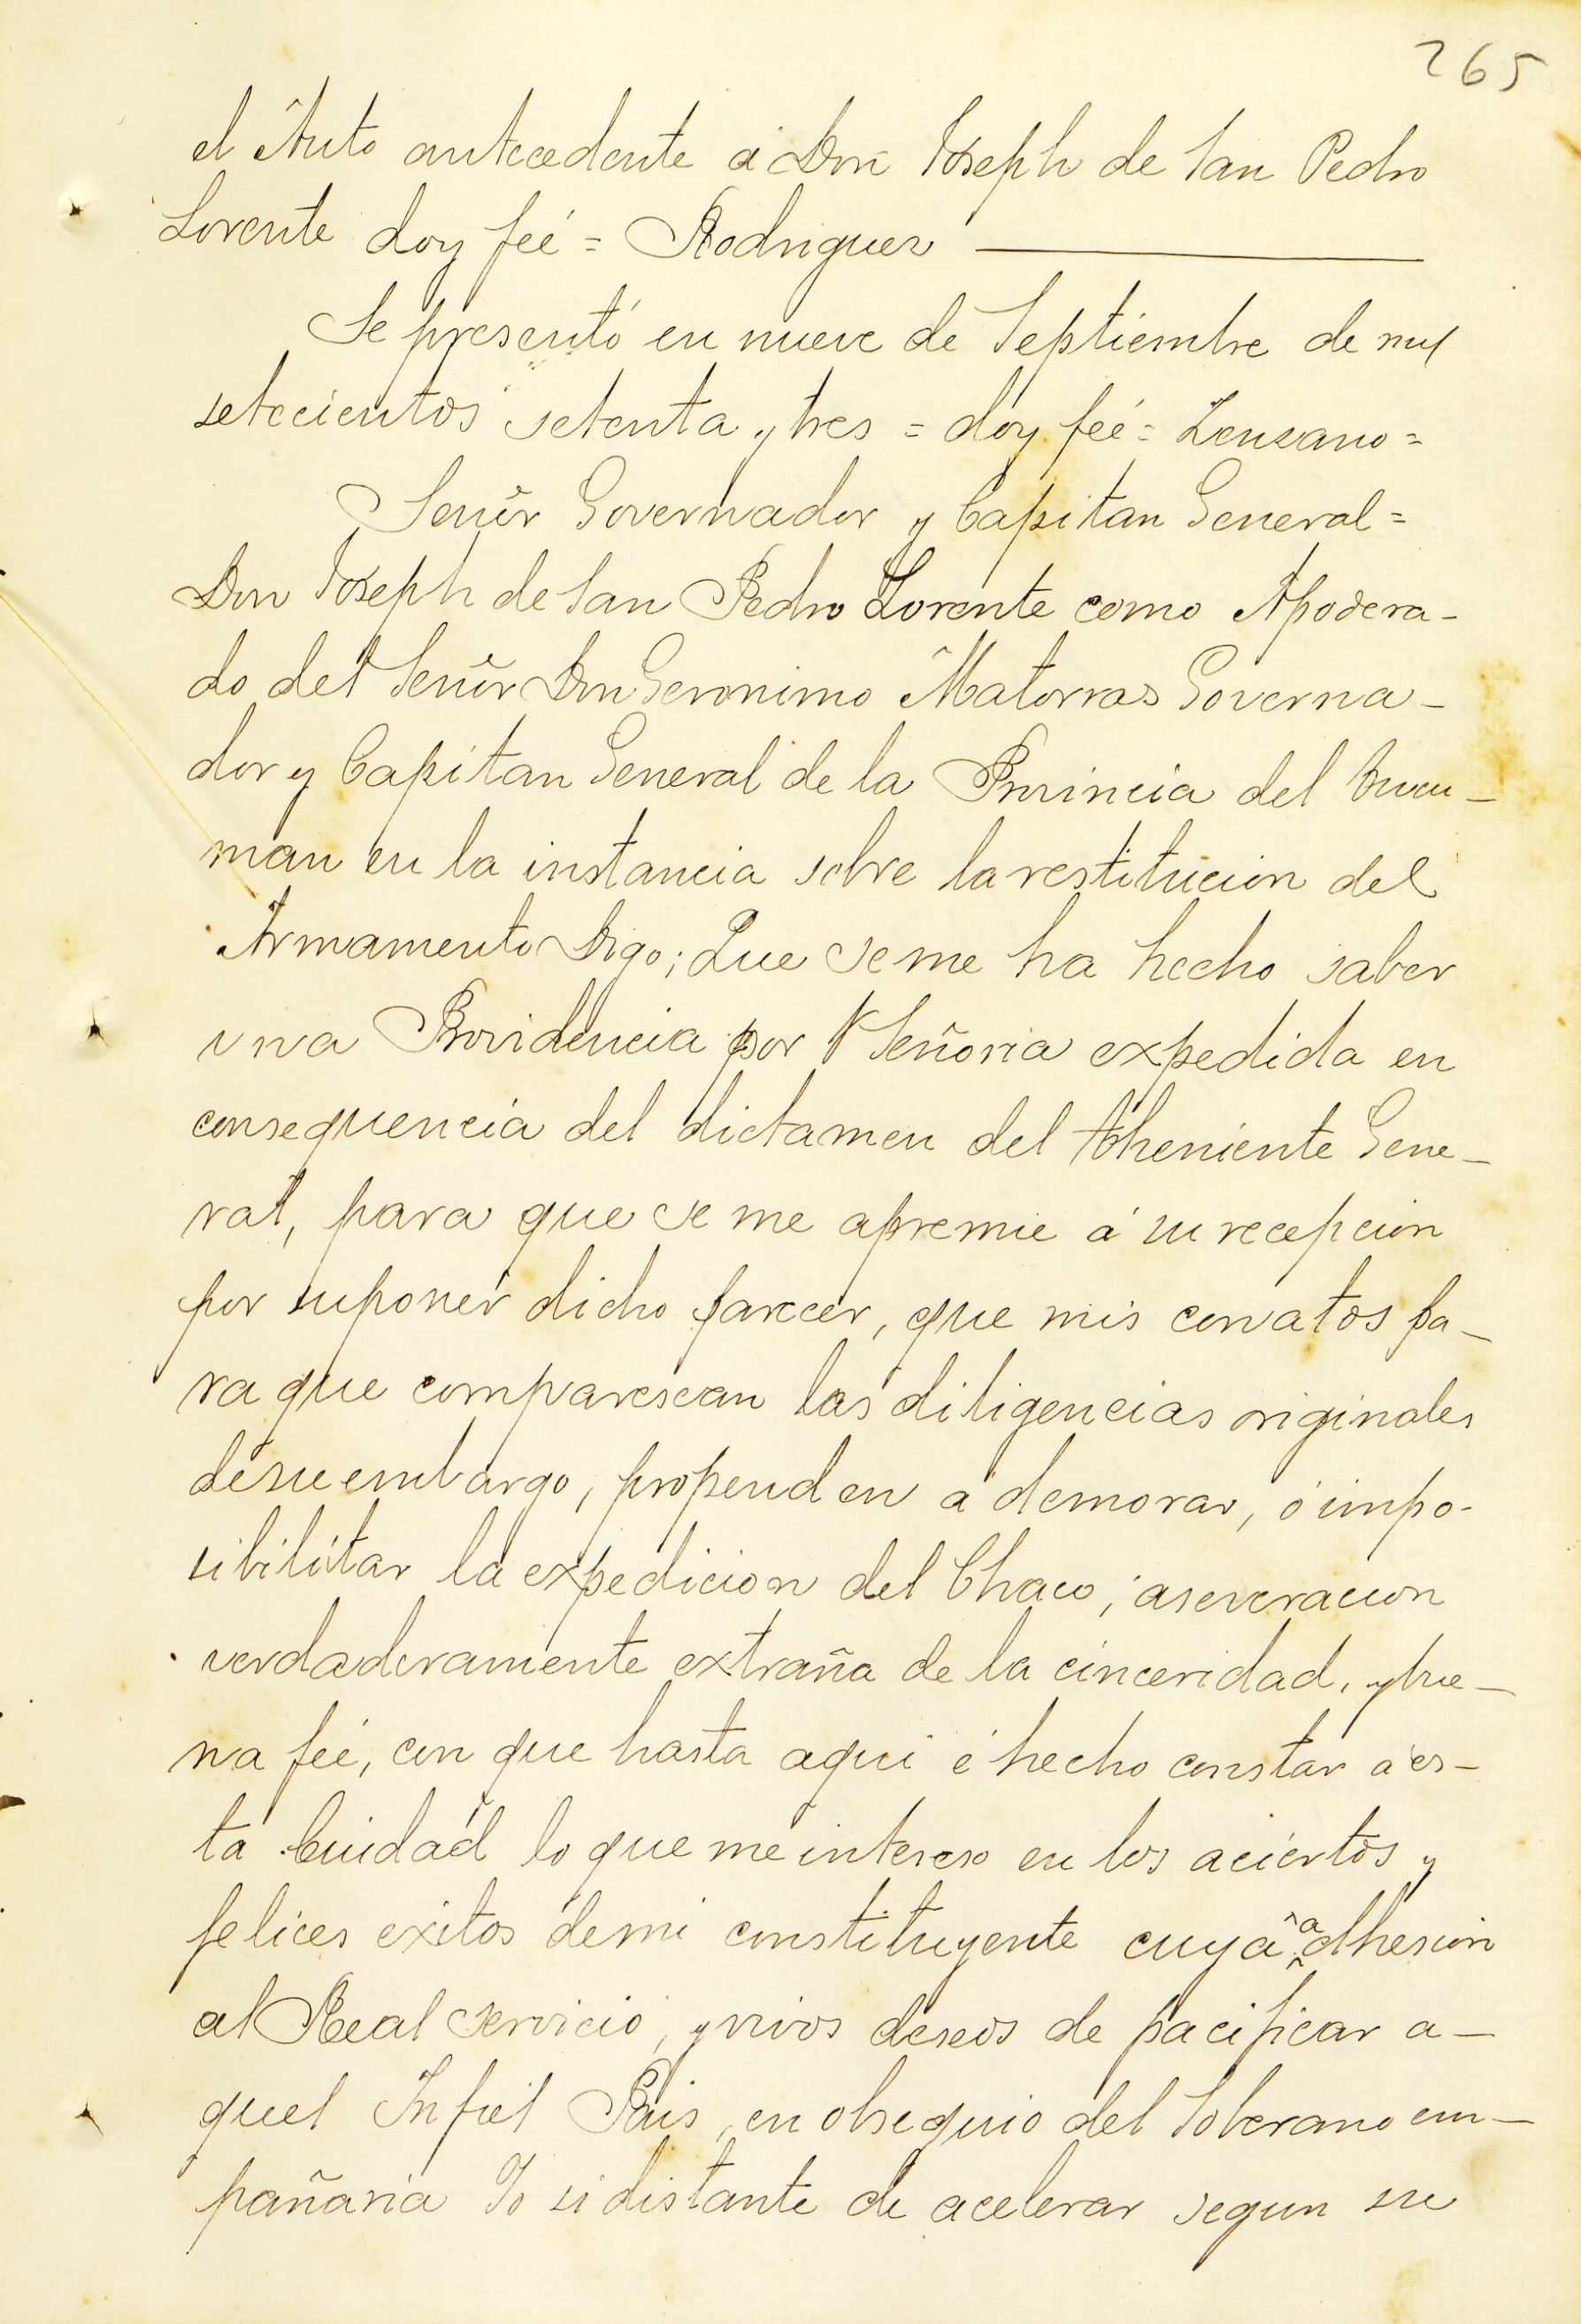 265
el Auto antecedente á Don Joseph de San Pedro
Lorente doy feé = Rodriguez
Se presentó en nueve de Septiembre de mil
setecientos setenta y tres = doy feé = Zenzano =
Señor Governador y Capitan General =
Don Joseph de San Pedro Lorente como Apodera-
do del Señor Don Geronimo Matorras Governa-
dor y Capitan General de la Provincia del Tucu-
man en la instancia sobre la restitucion del
Armamento Digo; Que se me ha hecho saber
una Providencia por V Señoria expedida en
consequencia del dictamen del Theniente Gene-
ral, para que se me apremie á su recepcion
por suponer dicho parecer, que mis conatos pa-
ra que comparescan las diligencias originales
de su embargo, propenden á demorar, ó impo-
sibilitar la expedicion del Chaco; aseveracion
verdaderamente extraña de la cinceridad, y bue-
na feé, con que hasta aqui é hecho constar á es-
ta Ciudad lo que me intereso en los aciertos y
felices exitos de mi constituyente cuya adhesion
al Real servicio, y vivos deseos de pacificar a-
quel Infiel Pais, en obsequio del Soberano em-
pañaria Yo si distante de acelerar segun su